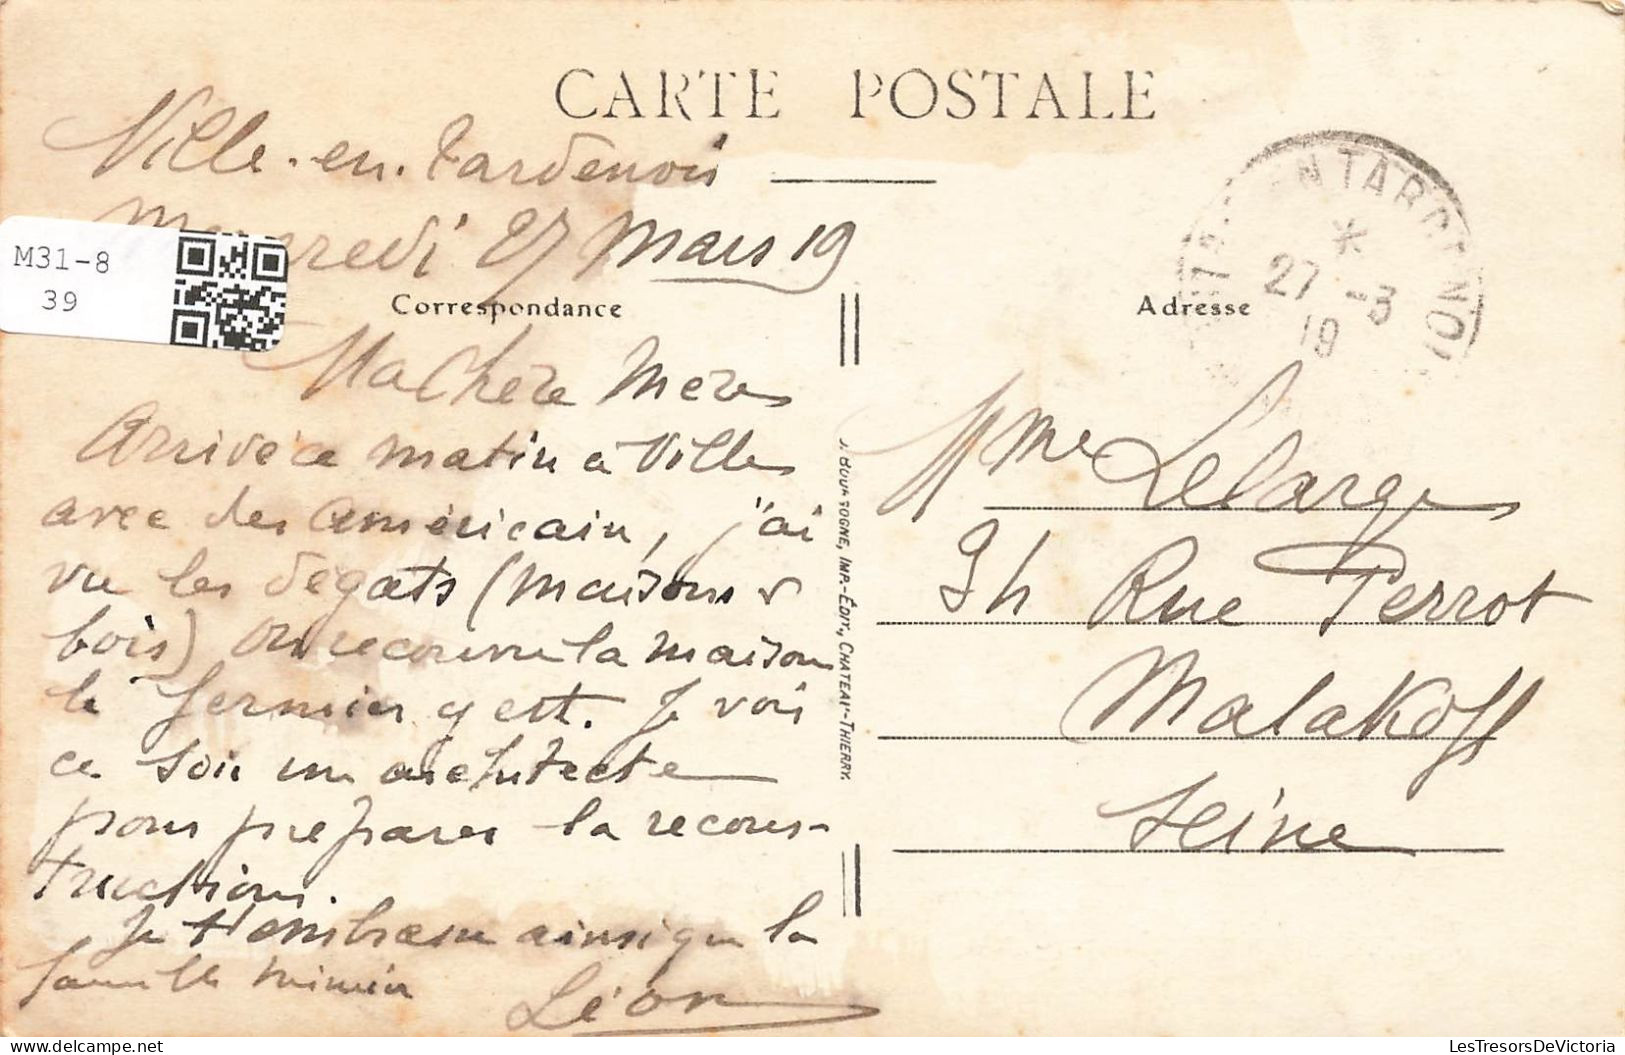 CARTE POSTALE
Ville-en-Tardenois
Mercredi 27 Mars 19
M31-8
39
Correspondance
Ma Chère Mère
Arrivé ce matin à Ville
avec des américains, j'ai
vu les dégats (maisons &
bois) On recouvre la maison
le fermier y est. Je vois
ce soir un architecte
pour préparer la recons-
truction.
Je t'embrasse ainsi que la
famille
Léon
J. BOURGOGNE, IMP.-ÉDIT., CHATEAU-THIERRY.
EN TARDENOI
27 -3
19
Adresse
Mme Lelarge
Rue Perrot
Malakoff
Seine
LesTresorsDeVictoria